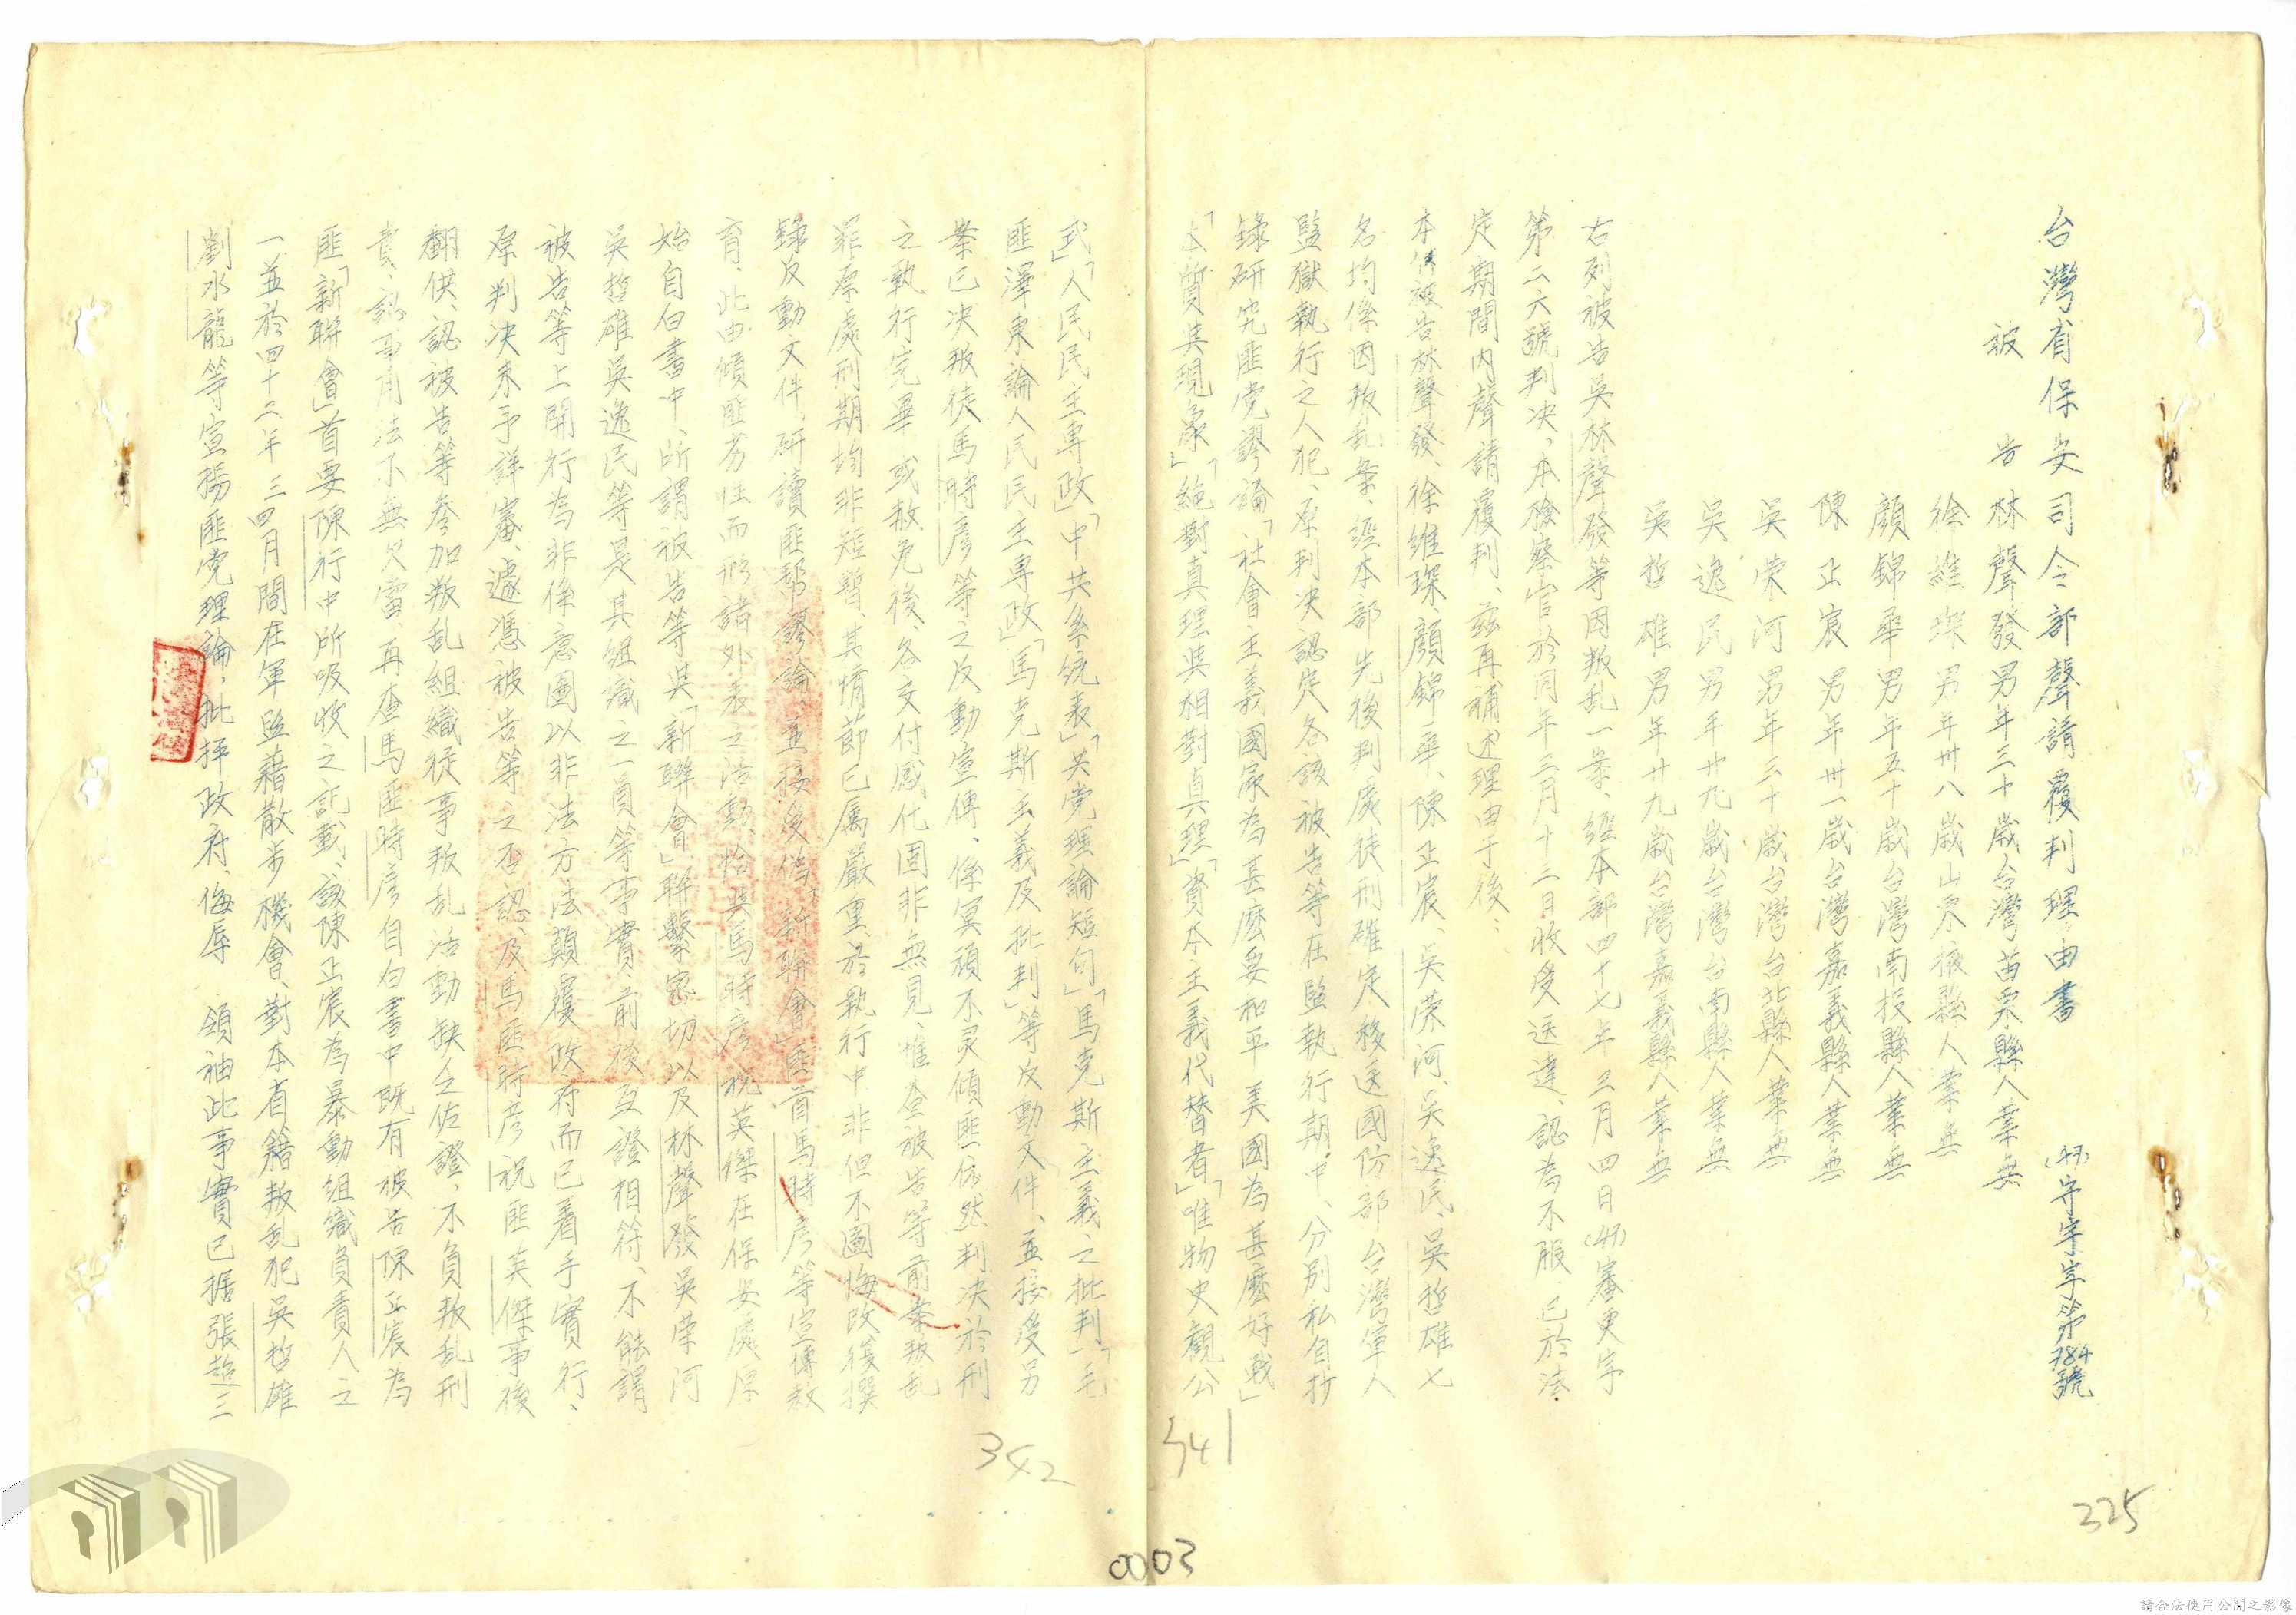 台灣省保安司令部聲請覆判理由書
(47)守宇字第784號
被告 林聲發 男年三十歲台灣苗栗縣人業無
徐維琛 男年卅八歲山東掖縣人業無
顏錦華 男年五十歲台灣南投縣人業無
陳正宸 男年卅一歲台灣嘉義縣人業無
吳榮河 男年三十歲台灣台北縣人業無
吳逸民 男年廿九歲台灣台南縣人業無
吳哲雄 男年廿九歲台灣嘉義縣人業無
右列被告吳林聲發等因叛乱一案、經本部四十七年三月四日(47)審更字
第二六號判决,本檢察官於同年三月十三日收受送達、認為不服、已於法
定期間內聲請覆判、茲再補述理由于後:
本件被告林聲發、徐維琛、顏錦華、陳正宸、吳榮河、吳逸民、吳哲雄七
名均係因叛乱案、經本部先後判處徒刑確定移送國防部台灣軍人
監獄執行之人犯、原判决認定各該被告等在監執行期中、分別私自抄
錄研究匪党謬論「社會主義國家為甚麽要和平美國為甚麽好戰」
「本質與現象」「絕對真理與相對真理」「資本主義代替者」「唯物史觀公
式」「人民民主專政」「中共系統表」「共党理論短句」「馬克斯主義之批判」「毛
匪澤東論人民民主專政」「馬克斯主義及批判」等反動文件、並接受另
案已决叛徒馬時彥等之反動宣傳、係冥頑不灵傾匪依然判决於刑
之執行完畢或赦免後、各交付感化固非無見、惟查被告等前案叛乱
罪原處刑期均非短暫、其情節已属嚴重、於執行中非但不圖悔改複撰
錄反動文件、研讀匪幫謬論、並接受偽「新聯會」匪首馬時彥等宣傳教
育、此由傾匪劣性而形諸外表之活動、恰與馬時彥祝英傑在保安處原
始自白書中、所謂被告等與「新聯會」聯繫密切以及林聲發吳榮河
吳哲雄吳逸民等是其組織之一員等事實、前後互證相符、不能謂
被告等上開行為非係意圖以非法方法顛覆政府而已著手實行、
原判决未予詳審、遽憑被告等之否認、及馬匪時彥祝匪英傑事後
翻供、認被告等參加叛乱組織從事叛乱活動缺乏佐證、不負叛乱刑
責、認事用法不無欠當、再查馬匪時彥自白書中既有被告陳正宸為
匪「新聯會」首要陳行中所吸收之記載、該陳正宸為暴動組織負責人之
一並於四十二年三四月間在軍監藉散步機會、對本省籍叛乱犯吳哲雄
劉水龍等宣揚匪党理論,批抨政府、侮辱 領袖此事實已据張超三
341
342
325
0003
請合法使用公開之影像